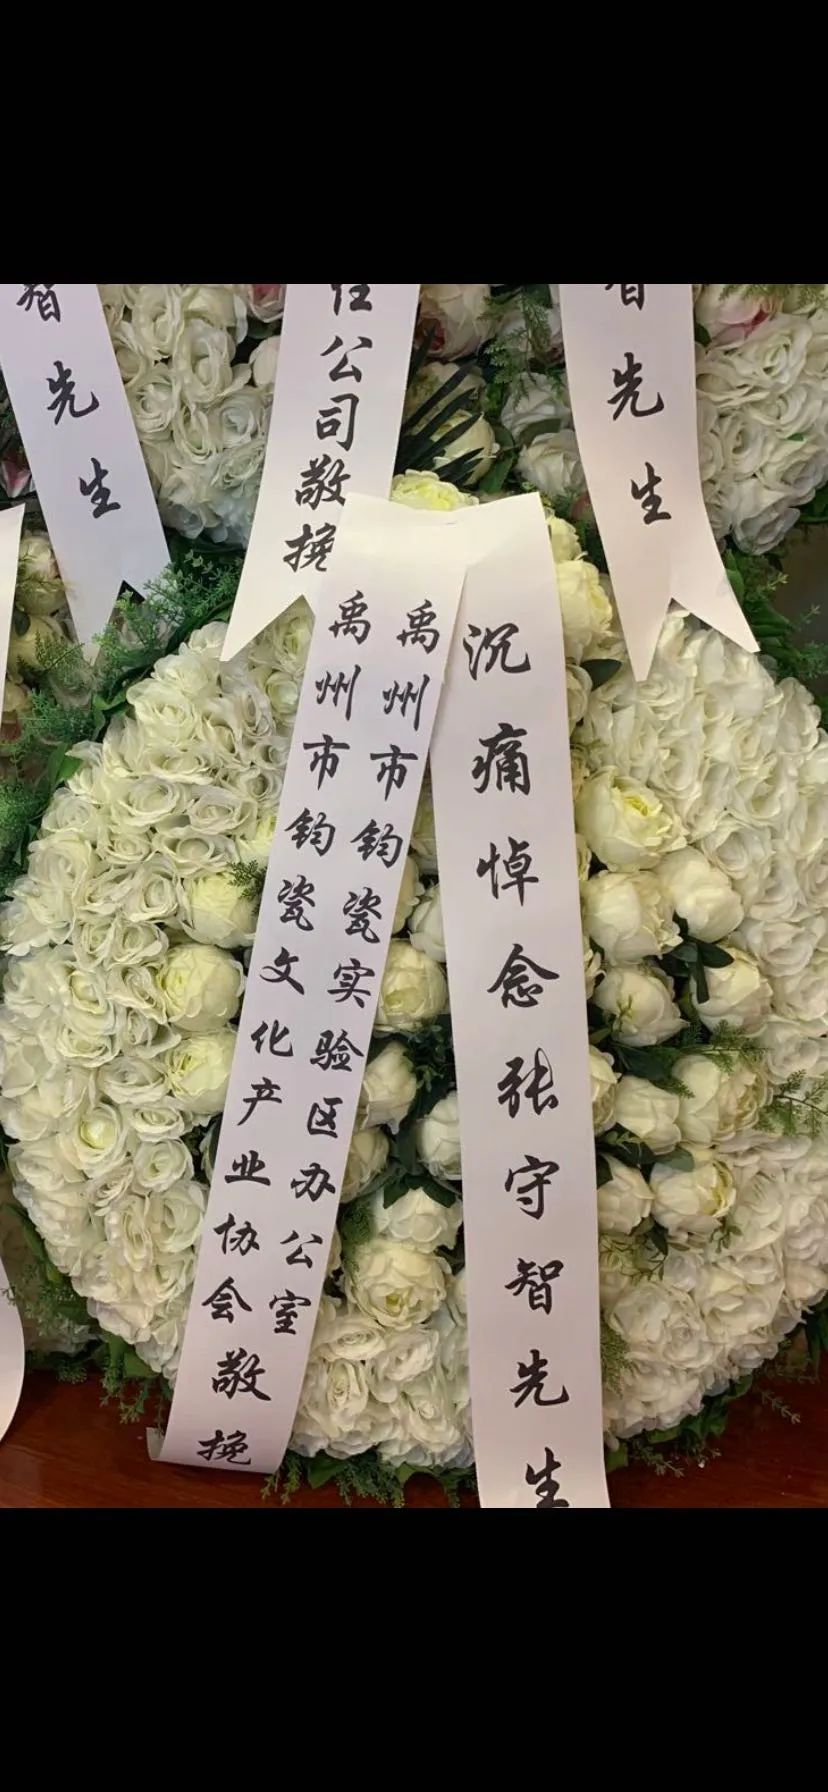 智先生
任公司敬挽
智先生
沉痛悼念张守智先生
禹州市钧瓷实验区办公室
禹州市钧瓷文化产业协会敬挽